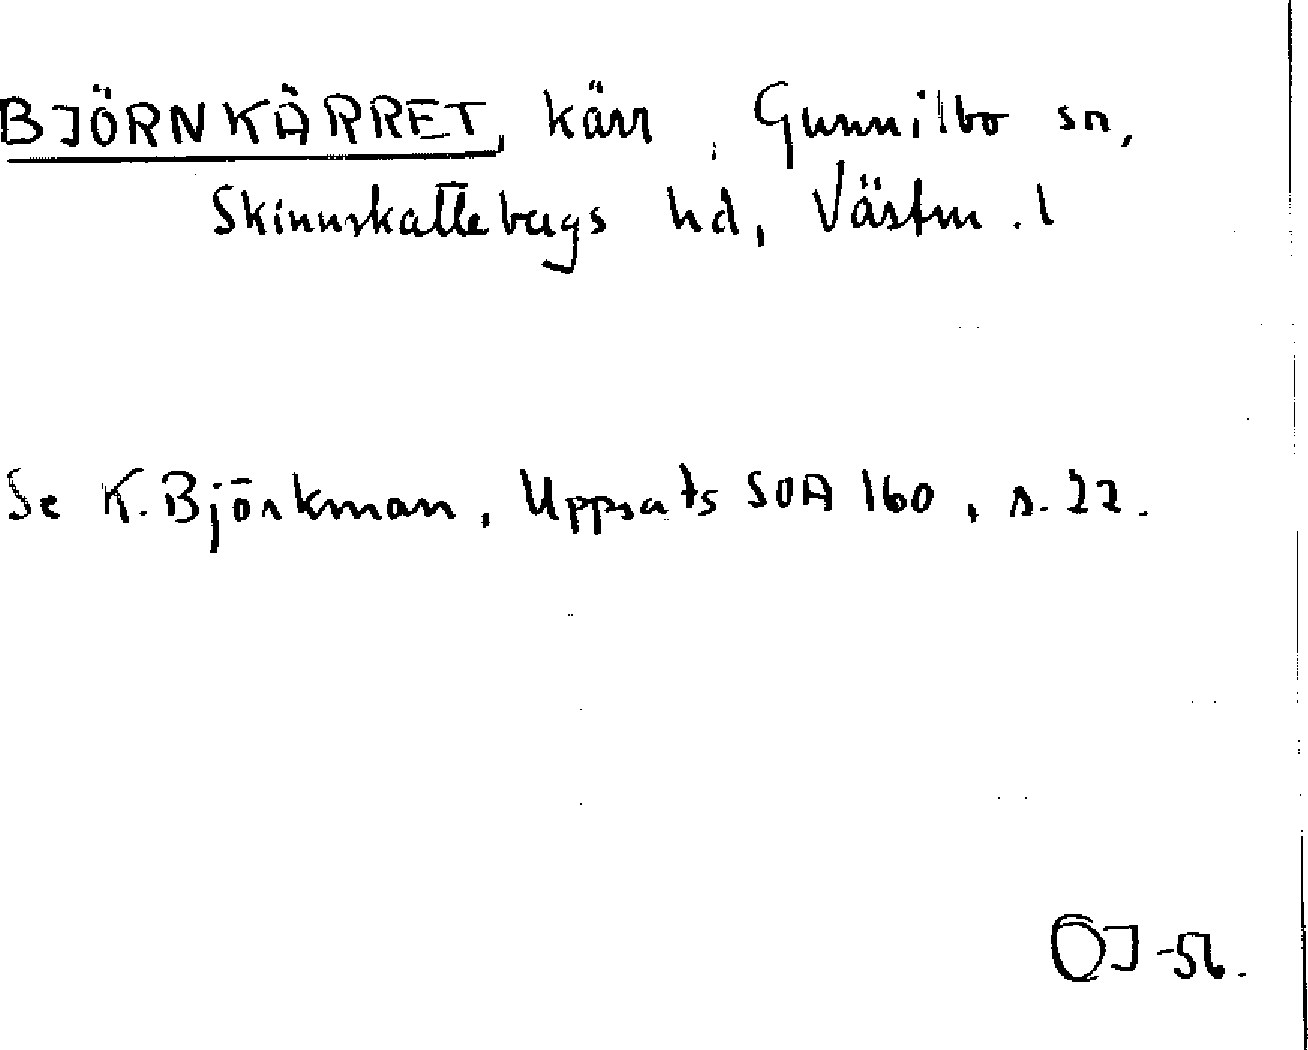 BJÖRNKÄRRET, kärr, Gunnilbo sn,
Skinnskattebergs hd, Västm. l
Se K. Björkman, Uppsats SOA 160, s. 22.
OJ-56.